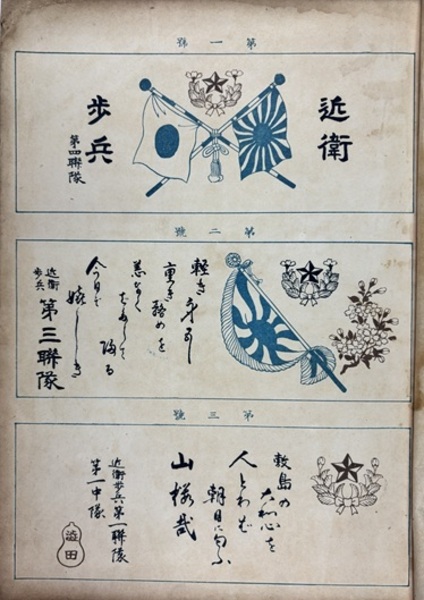 第一號
近衛
歩兵
第四聯隊
第二號
軽き身に
重き務めを
恙なく
今日ぞ
嬉しき
近衛
歩兵
第三聯隊
第三號
敷島の
大和心を
人とわば
朝日に匂ふ
山桜哉
近衛歩兵第一聯隊
第一中隊
澁田